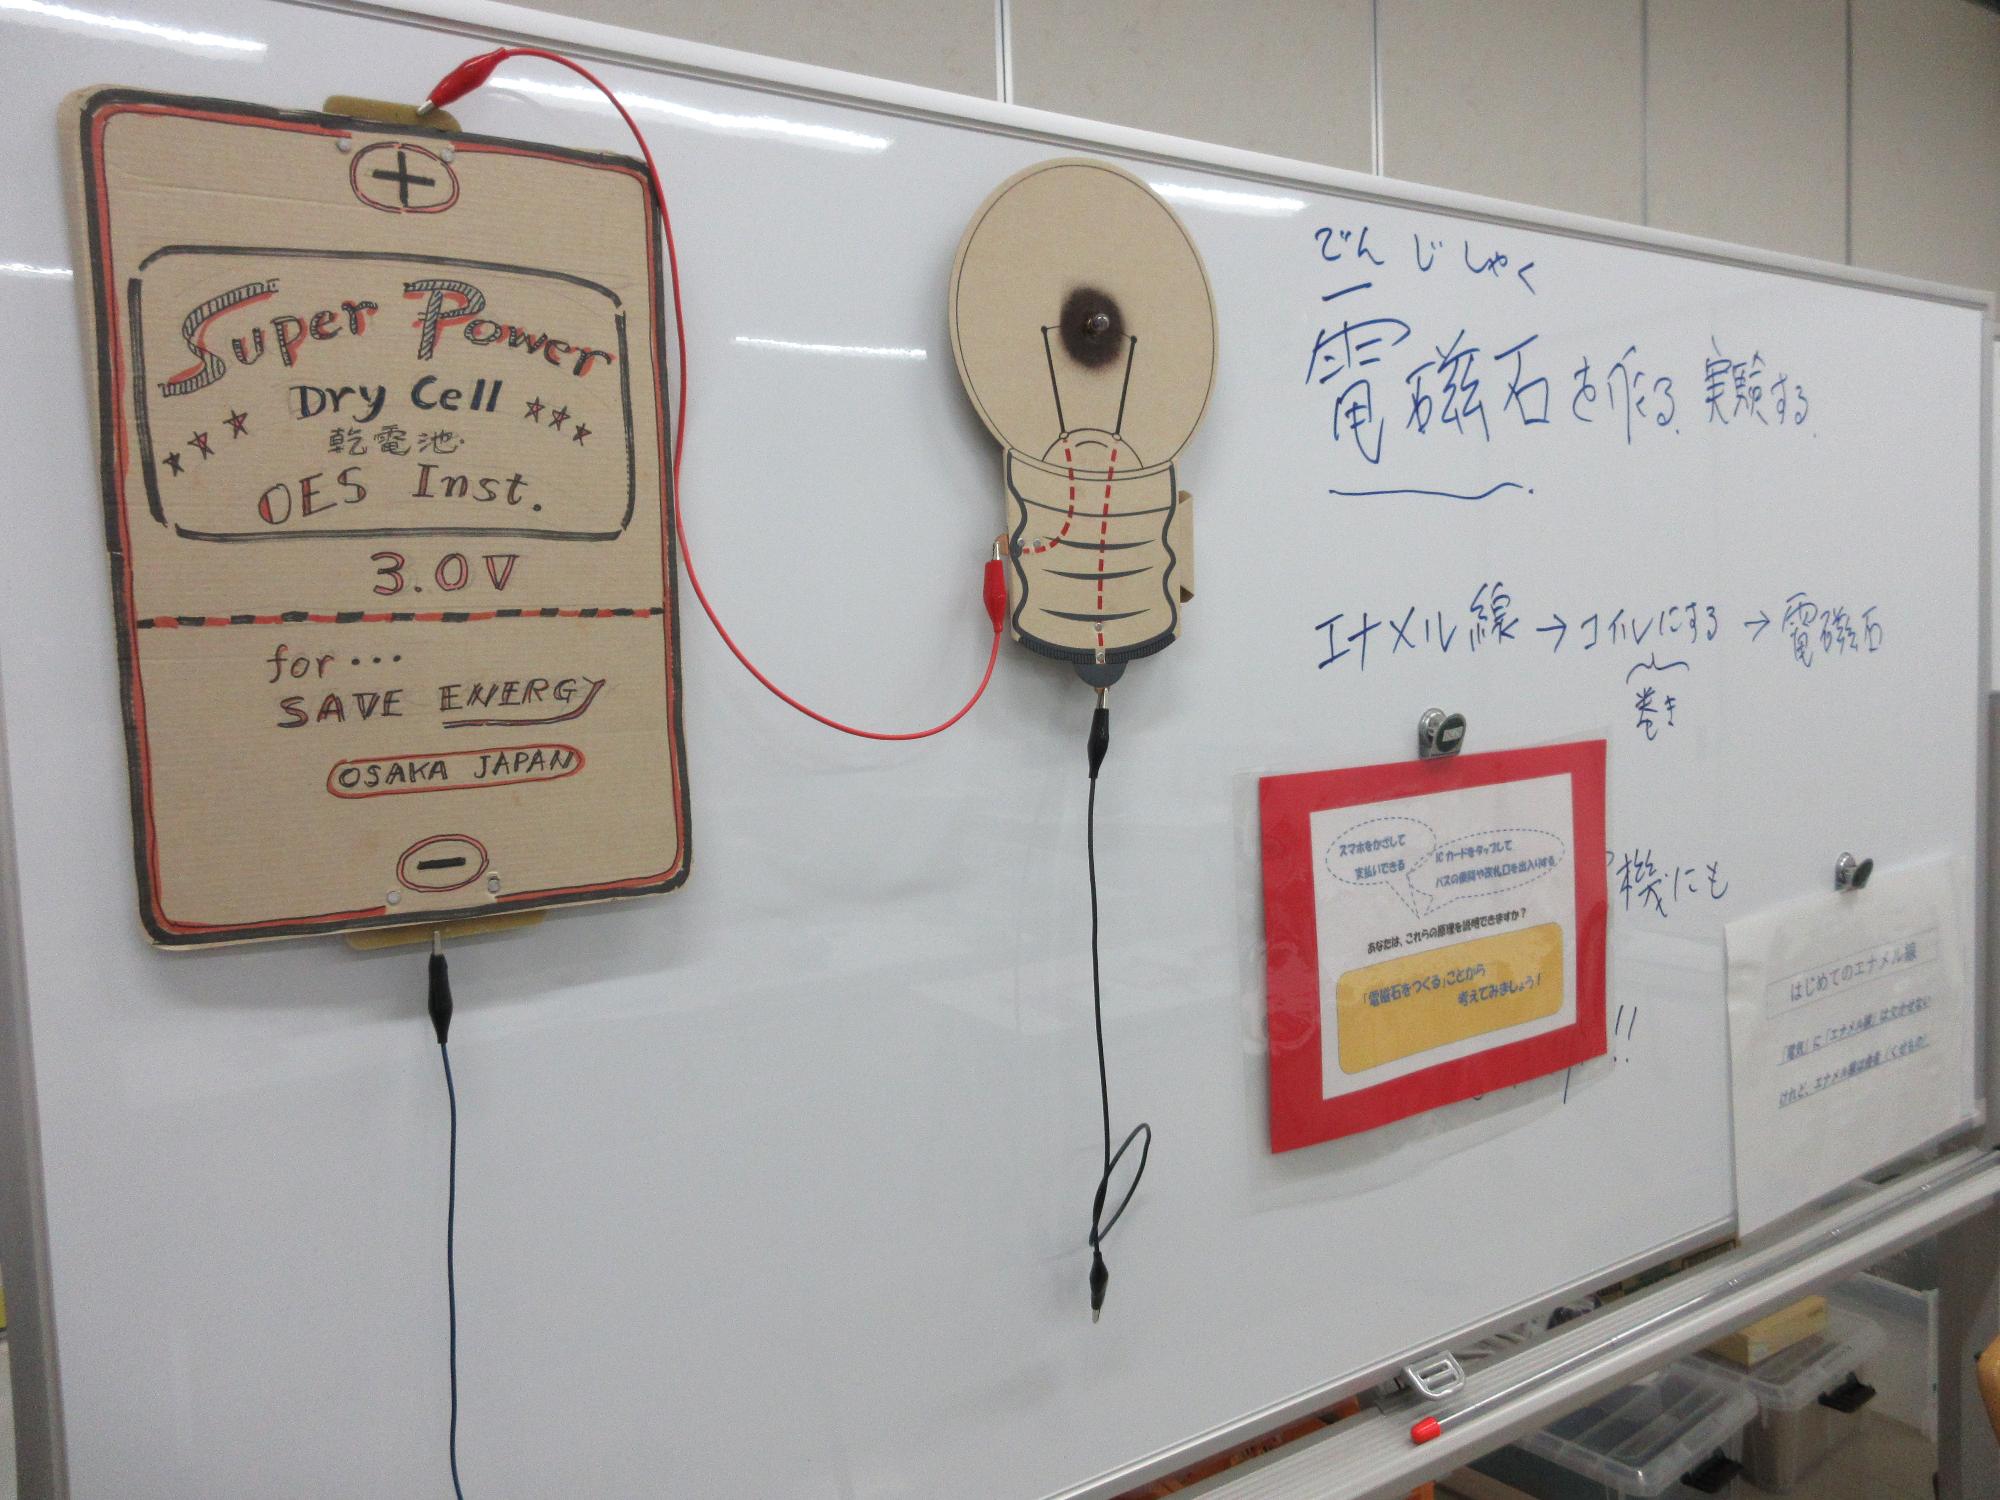 +
Super Power
Dry Cell
乾電池
OES Inst.
3.0V
for...
SAVE ENERGY
OSAKA JAPAN
−
でん じしゃく
電磁石を作る 実験する
エナメル線→コイルにする→電磁石
巻き
機にも
!!
スマホをかざして
支払いできる
ICカードをタップして
バスの乗降や改札口を出入りする
あなたは、これらの原理を説明できますか？
「電磁石をつくる」ことから
考えてみましょう！
はじめてのエナメル線
「電気」に「エナメル線」は欠かせない
けれど、エナメル線は曲者（くせもの）